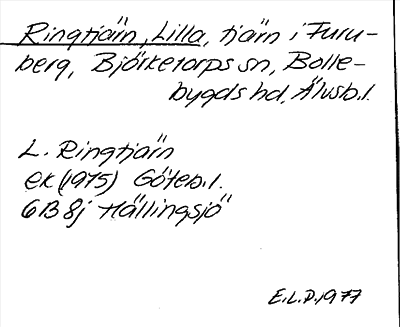 Ringtjärn, Lilla, tjärn i Furu-
berg, Björketorps sn, Bolle-
bygds hd, Älvsb.l.
L. Ringtjärn
ek (1975) Göteb.l.
6B 8j Hällingsjö
E.L.D. 1977